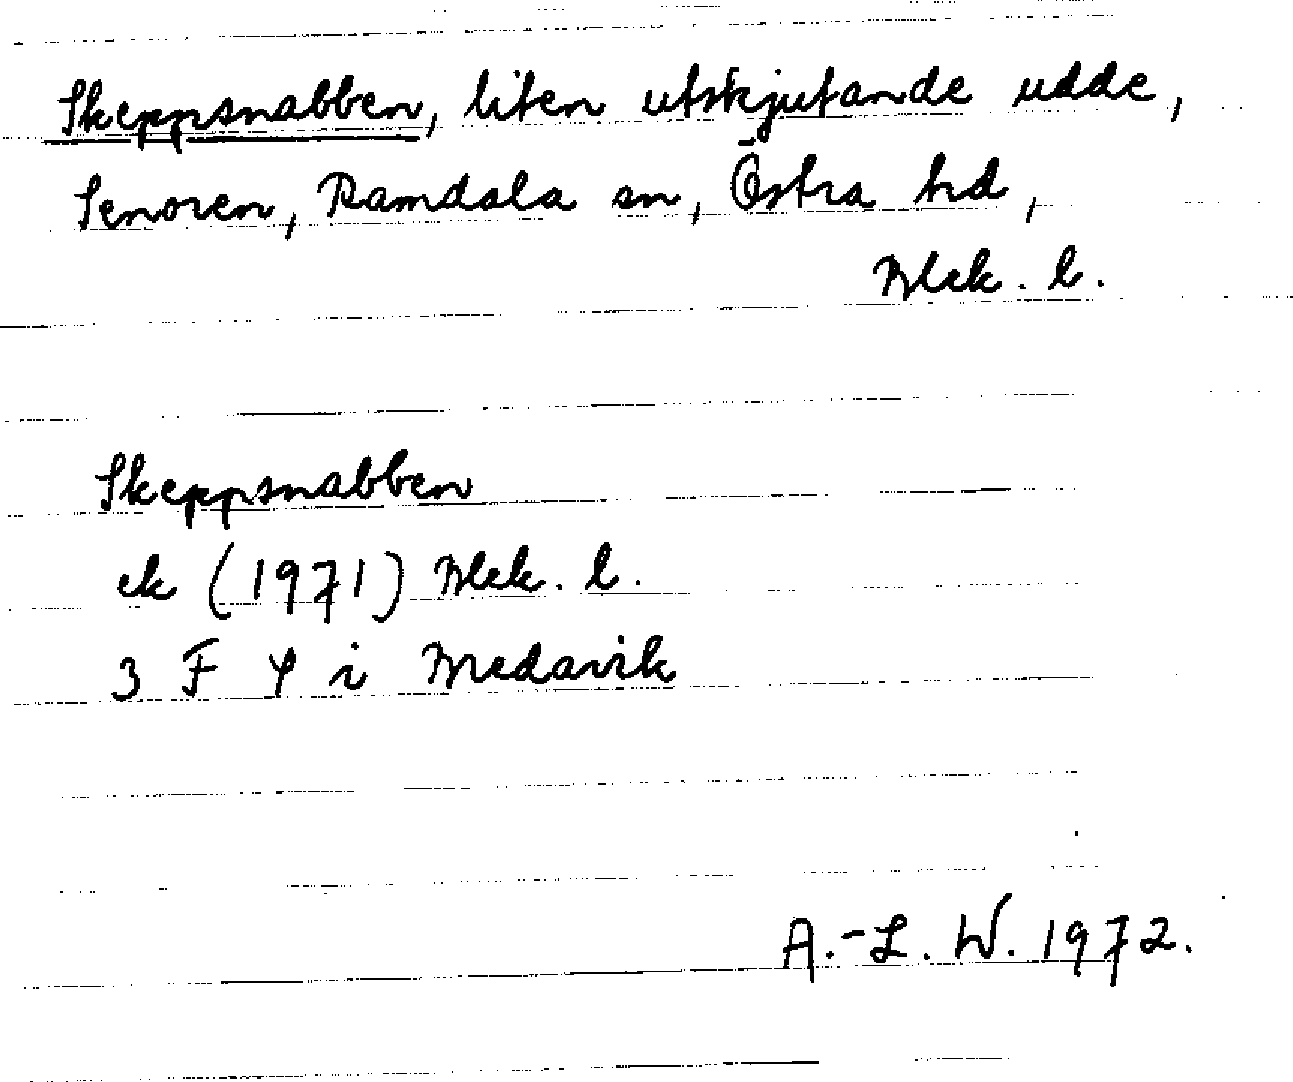 Skeppsnabben, liten utskjutande udde,
Senoren, Ramdala sn, Östra hd,
Blek. l.
Skeppsnabben
ek (1971) Blek. l.
3 F 4 i Bredavik
A.-L. W. 1972.